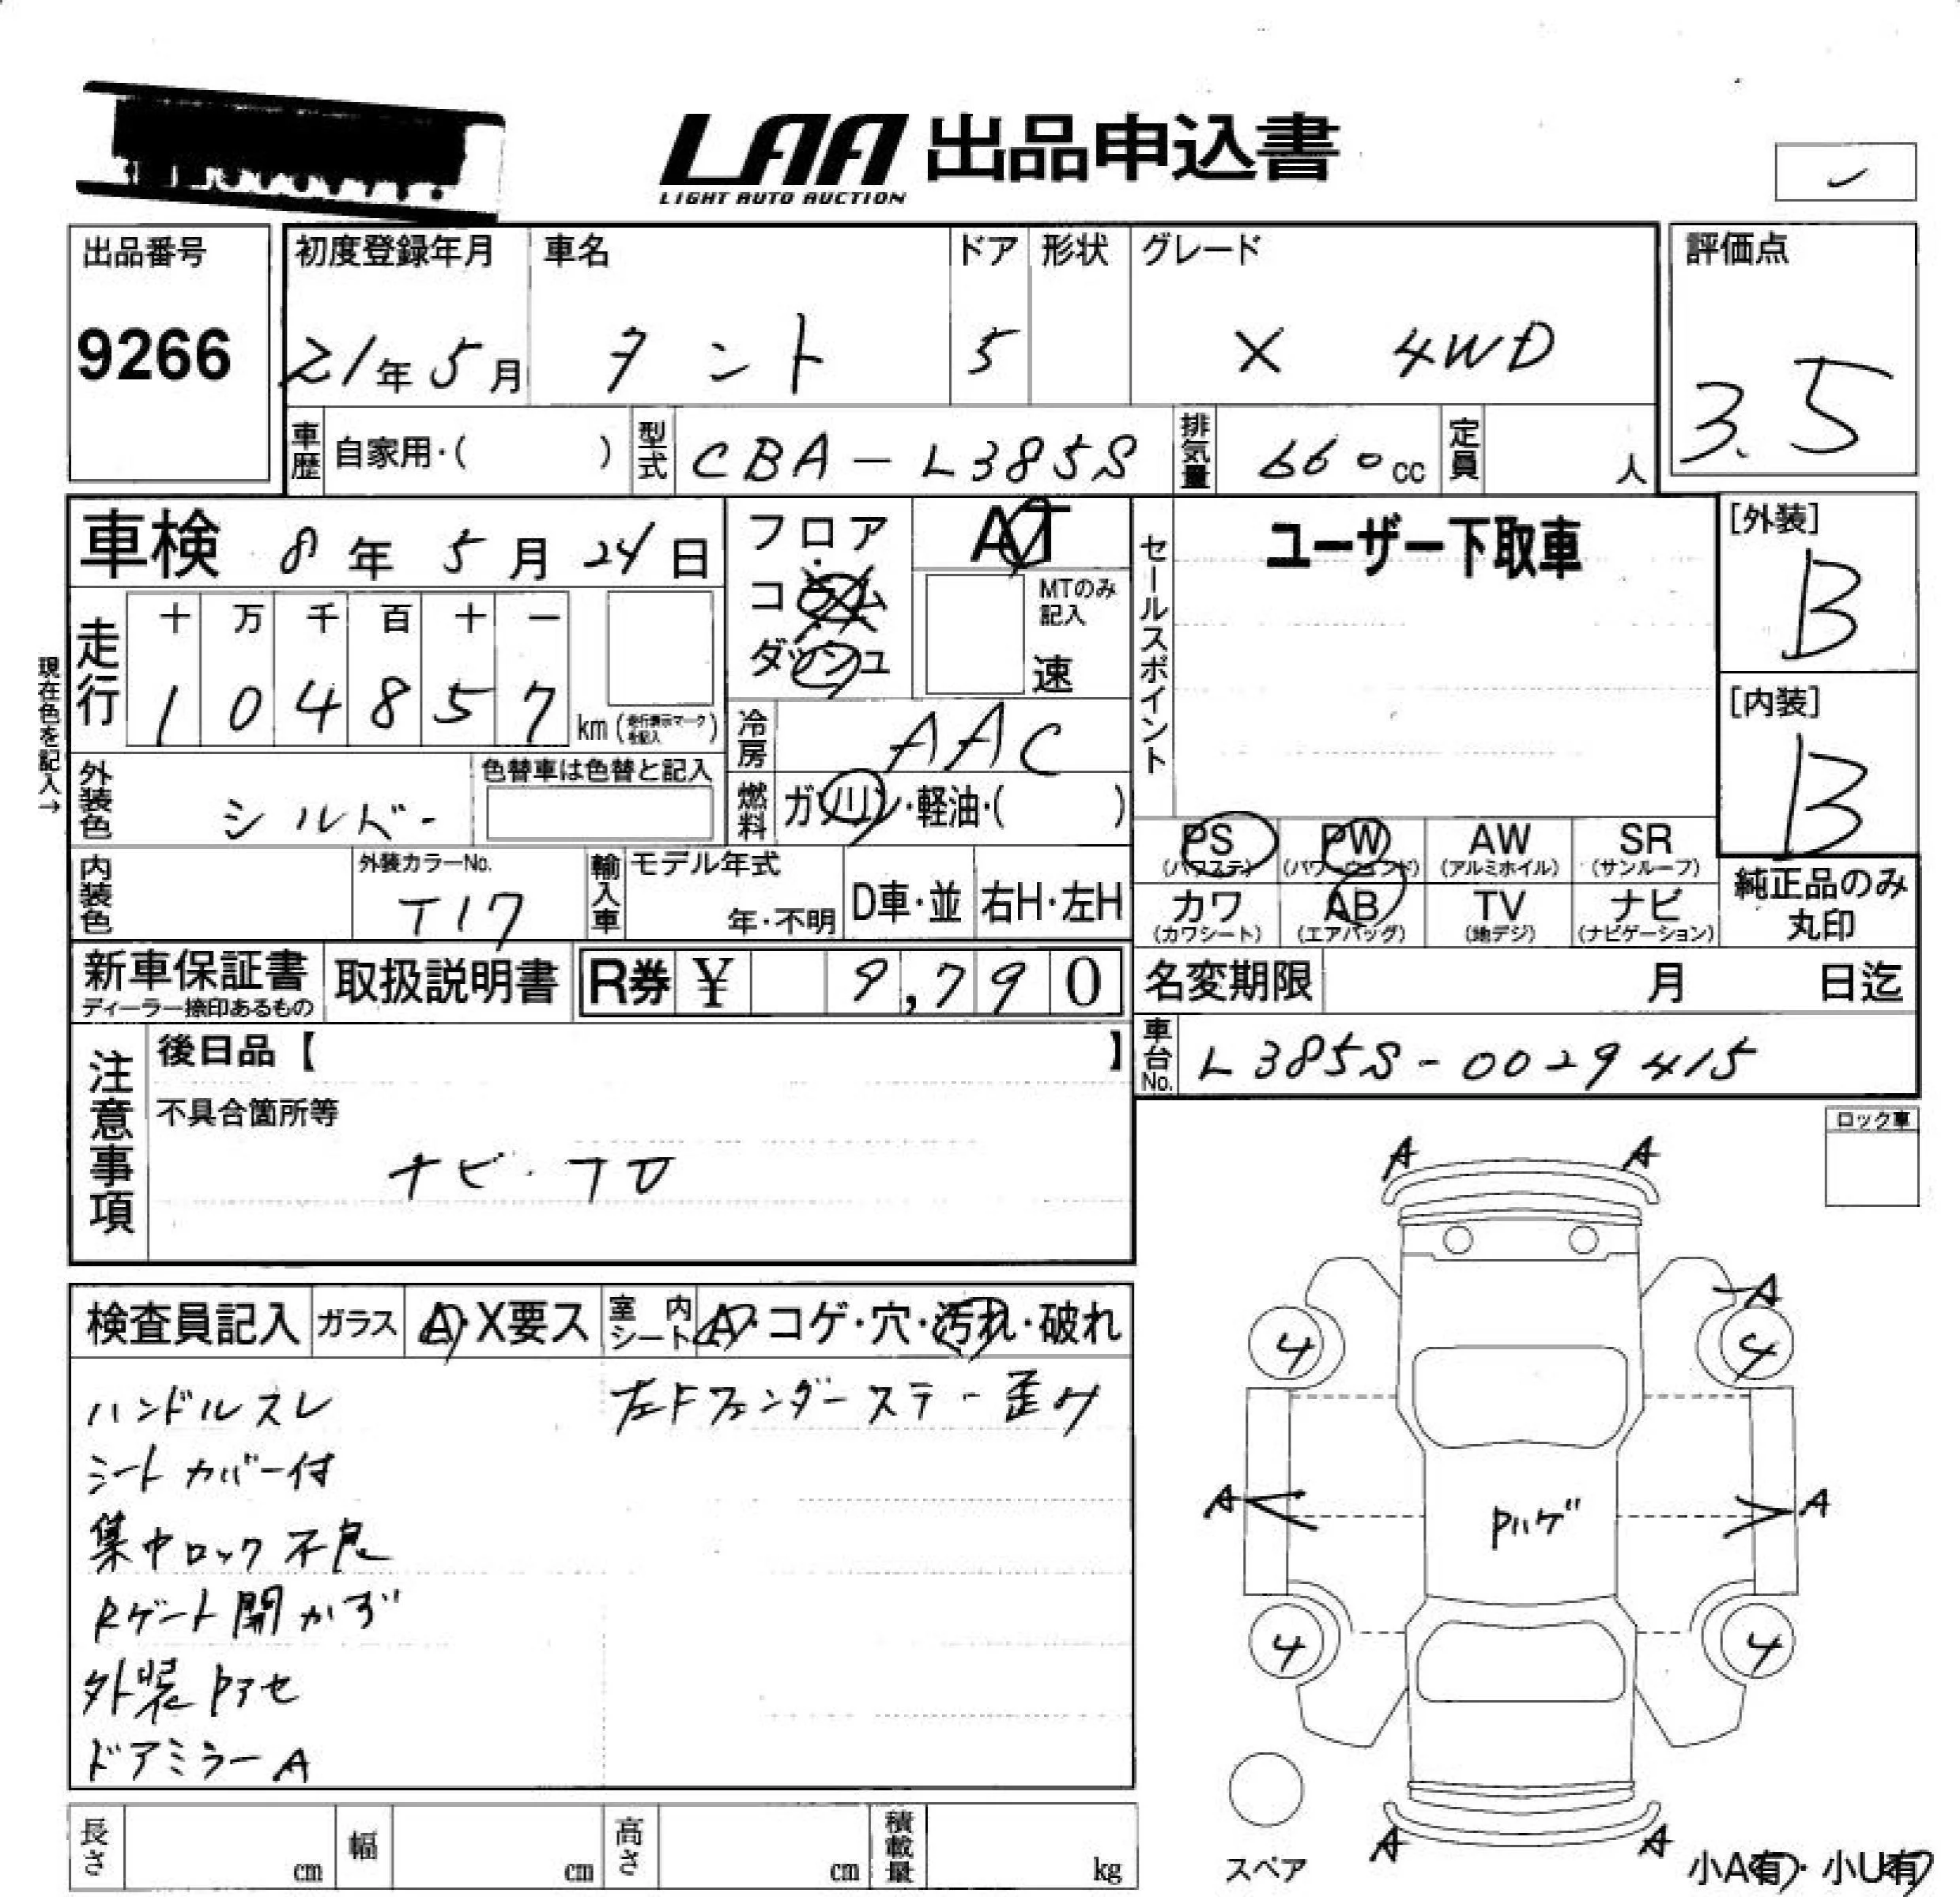 LAA 出品申込書
LIGHT AUTO AUCTION
出品番号
9266
初度登録年月
21年 5月
車名
タント
ドア
5
形状
グレード
X 4WD
評価点
3.5
車歴 自家用・( )
型式 CBA-L385S
排気量 660cc
定員 人
車検 8年 5月 24日
フロア
コラム
ダッシュ
AT
MTのみ
記入
速
セールスポイント
ユーザー下取車
[外装]
B
[内装]
B
現在色を記入→
走行
十 万 千 百 十 一
1 0 4 8 5 7 km (走行表示マークを記入)
冷房 AAC
外装色 シルバー
色替車は色替と記入
燃料 ガソリン・軽油・( )
PS (パワステ) PW (パワーウィンド) AW (アルミホイル) SR (サンルーフ)
カワ (カワシート) AB (エアバッグ) TV (地デジ) ナビ (ナビゲーション)
純正品のみ
丸印
内装色
外装カラーNo.
T17
輸入車 モデル年式
年・不明
D車・並 右H・左H
新車保証書
ディーラー捺印あるもの
取扱説明書
R券 ¥ 9,790
名変期限 月 日迄
車台No. L385S-0029415
注意事項
後日品【 】
不具合箇所等
ナビ・フロ
ロック車
検査員記入 ガラス A・X要ス 室内シート A・コゲ・穴・汚れ・破れ
ハンドルスレ
左Fフェンダーステー歪み
シートカバー付
集中ロック不良
Rゲート開かず
外装Pアセ
ドアミラーA
A A
A
4 4
A A
Pハゲ
4 4
A A
スペア
小A有・小U有
長さ cm 幅 cm 高さ cm 積載量 kg